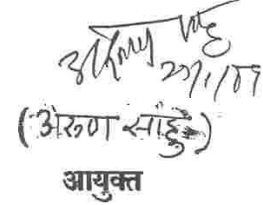 27/1/09
(अरुण साहू)
आयुक्त